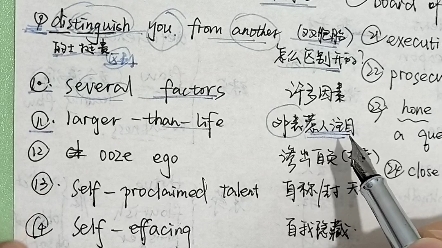 ⑨ distinguish you from another (双胞胎)
怎么区别开的?
⑩. several factors 许多因素
⑪. larger-than-life 外表惹人注目
⑫ ooze ego 渗出自负
⑬. Self-proclaimed talent 自称/封天
⑭ Self-effacing 自我隐藏.
board of
㉑ executi
㉒ prosecu
㉓ hone
a que
㉔ close